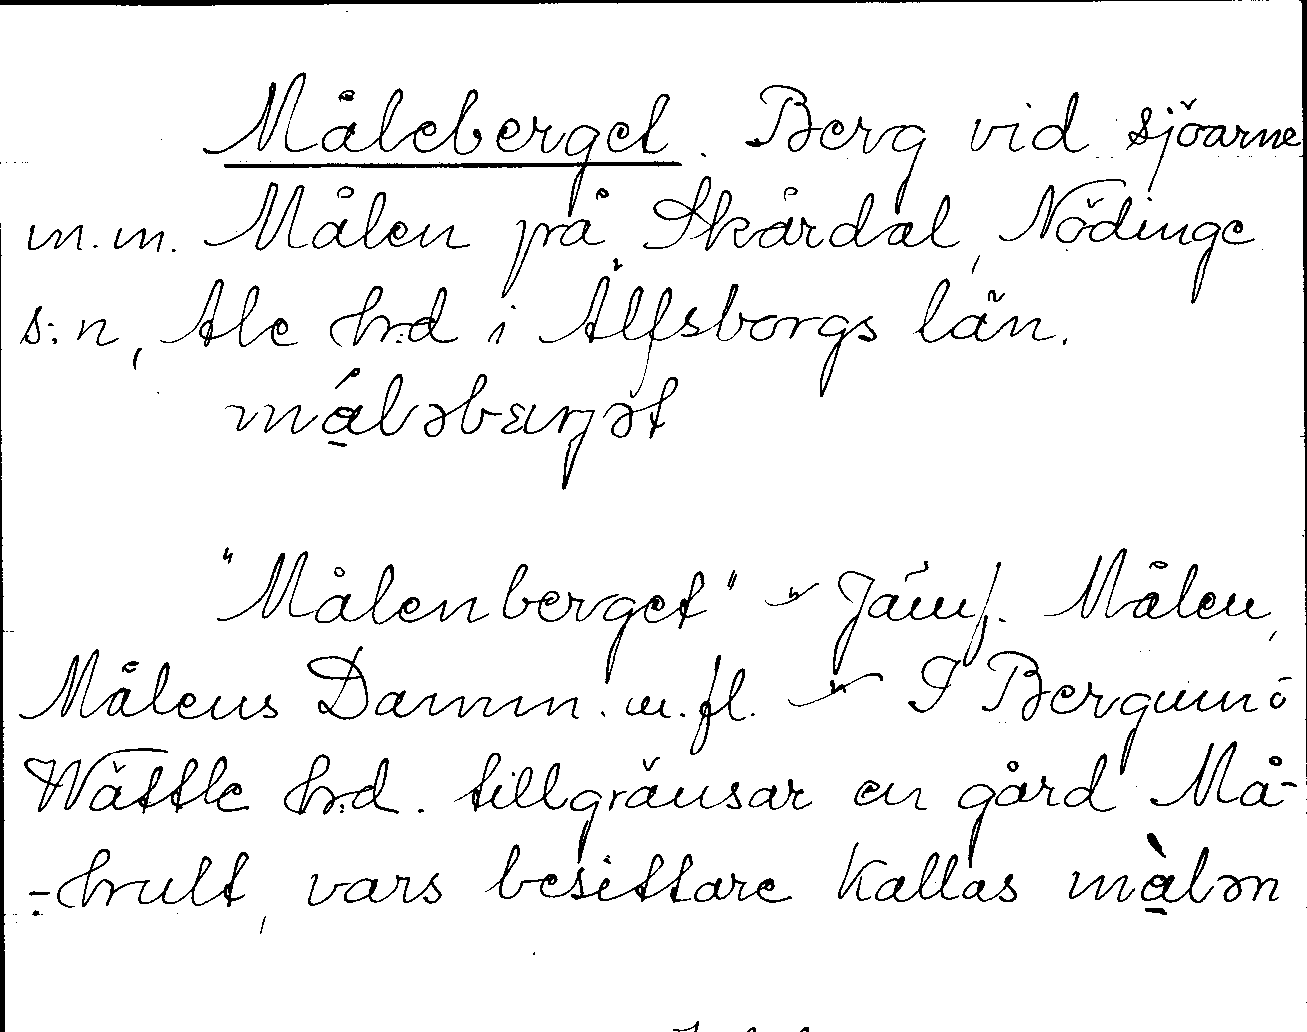 Måleberget. Berg vid sjöarne
m.m. Målen på Skårdal, Nödinge
s:n, Ale hrd i Älfsborgs län.
"Målenberget" Jämf. Målen,
Målens Damm. m.fl. I Bergum i
Wättle hrd. tillgränsar en gård Må-
-hult, vars besittare kallas